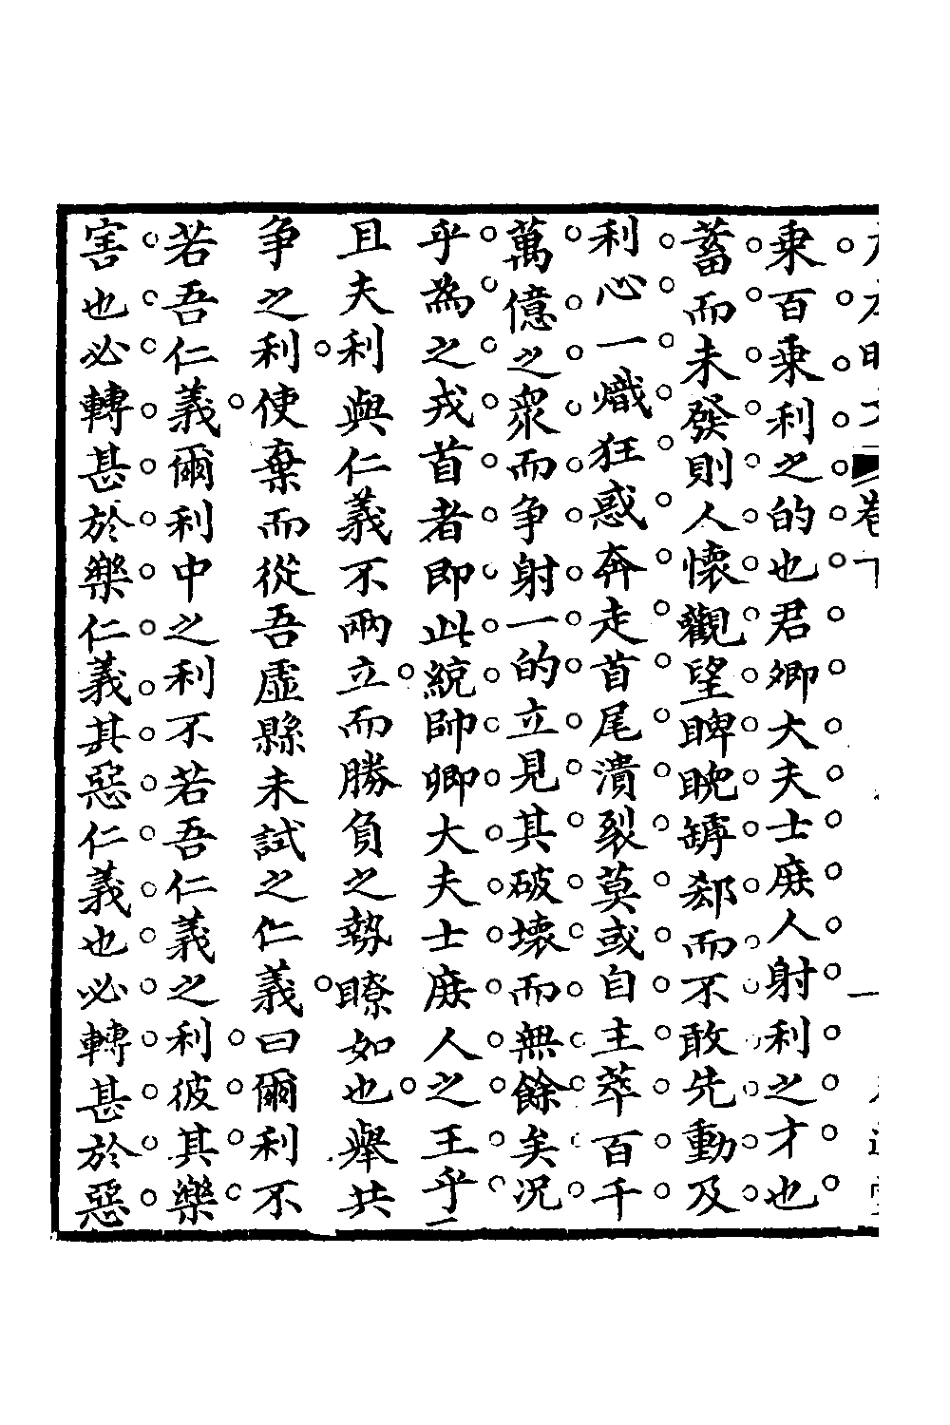 乗百乗利之的也君卿大夫士庻人射利之才也
蓄而未發則人懐觀望睥睨罅郄而不敢先動及
利心一熾狂惑奔走首尾潰裂莫或自主萃百千
萬億之衆而争射一的立見其破壊而無餘矣况
乎為之戎首者即此統帥卿大夫士庻人之王乎
且夫利與仁義不兩立而勝負之勢瞭如也舉共
争之利使棄而從吾虛縣未試之仁義曰爾利不
若吾仁義爾利中之利不若吾仁義之利彼其樂
害也必轉甚於樂仁義其惡仁義也必轉甚於惡